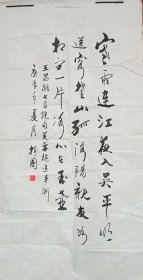 寒雨連江夜入吴平明
送客楚山孤洛陽親友如
相问一片冰心在玉壺
王昌齡七言绝句芙蓉楼送辛渐
夏月